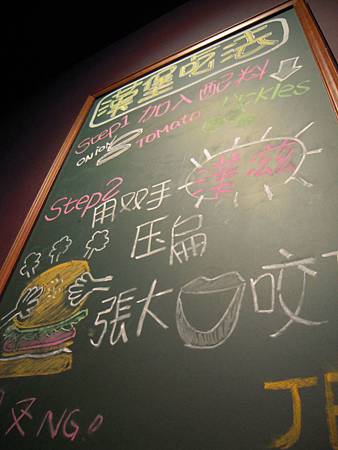 漢堡吃法
Step1 加入配料
ONION TOMATO Pickles
Step2 用双手 漢堡
压扁
張大 咬
NG。